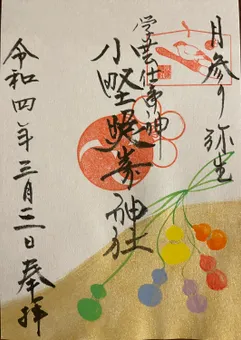 月参り 弥生
学芸仕事神
小野照嵜神社
令和四年三月三日 奉拝